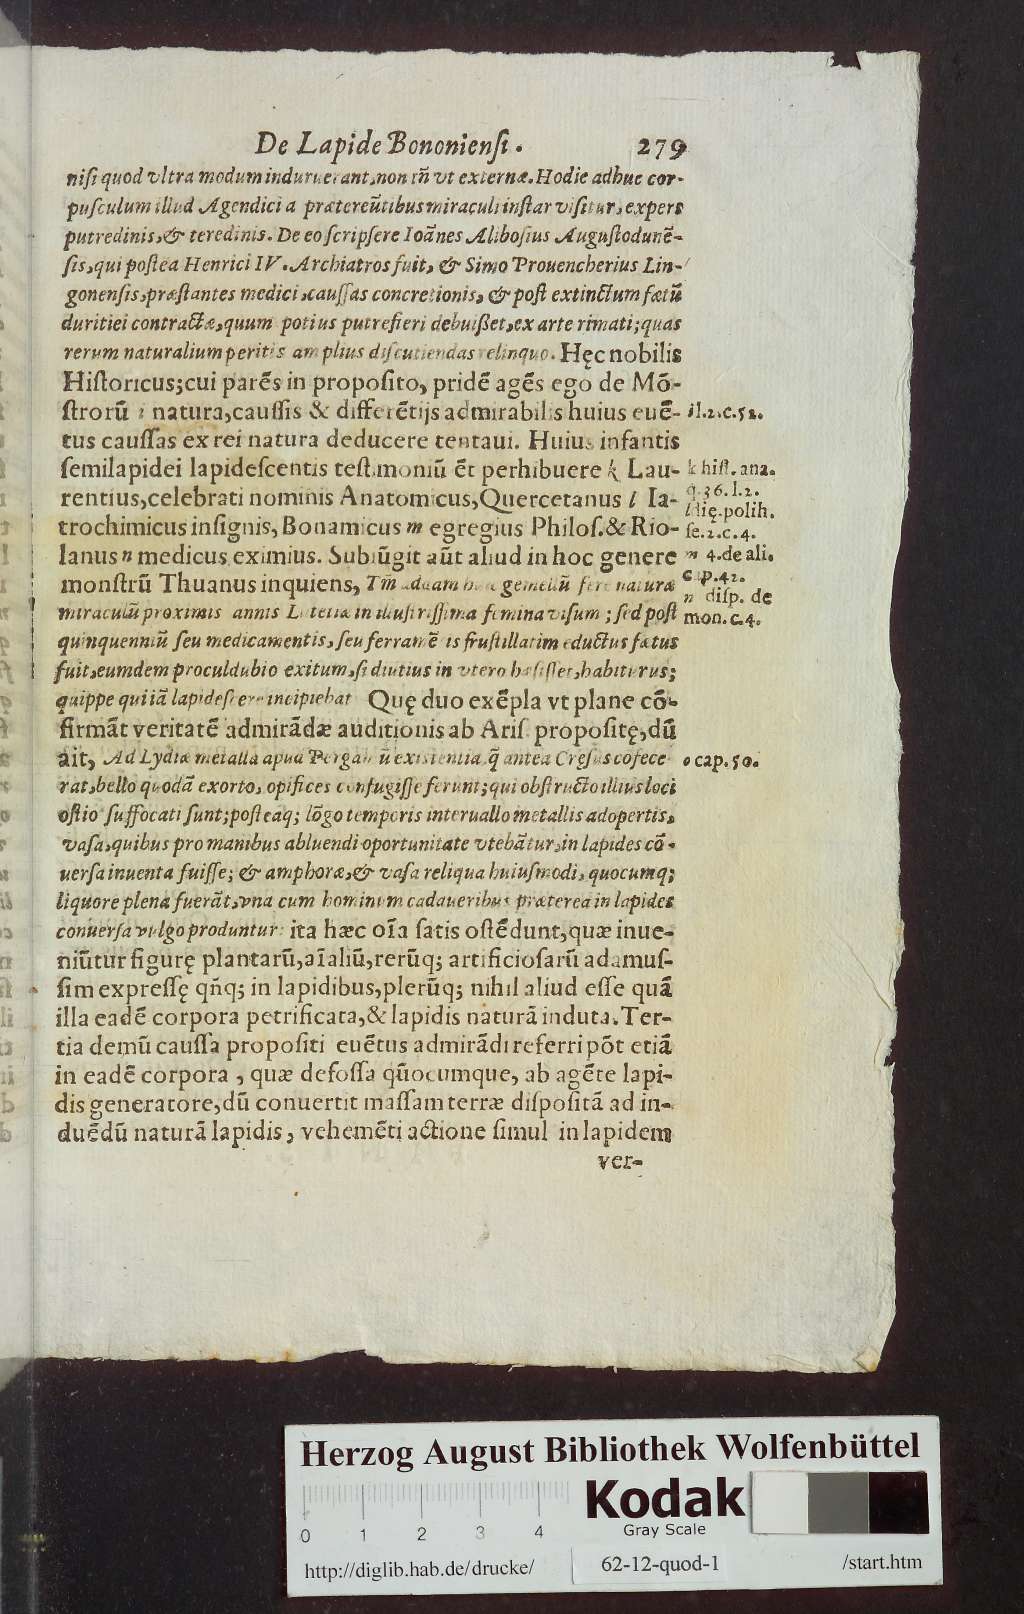 De Lapide Bononiensi. 279
nisi quod vltra modum induruerant, non tñ vt externæ. Hodie adhuc cor-
pusculum illud Agendici a prætereũtibus miraculi instar visitur, expers
putredinis, & teredinis. De eo scripsere Ioãnes Alibosius Augustodunẽ-
sis, qui postea Henrici IV. Archiatros fuit, & Simo Prouencherius Lin-
gonensis, præstantes medici, caussas concretionis, & post extinctum fætũ
duritiei contractæ, quum potius putrefieri debuißet, ex arte rimati; quas
rerum naturalium peritis amplius discutiendas relinquo. Hęc nobilis
Historicus; cui parẽs in proposito, pridẽ agẽs ego de Mõ-
strorũ i natura, caussis & differẽtijs admirabilis huius euẽ-
tus caussas ex rei natura deducere tentaui. Huius infantis
semilapidei lapidescentis testimoniũ ẽt perhibuere k Lau-
rentius, celebrati nominis Anatomicus, Quercetanus l Ia-
trochimicus insignis, Bonamicus m egregius Philos. & Rio-
lanus n medicus eximius. Subiũgit aũt aliud in hoc genere
monstrũ Thuanus inquiens, gemellũ fere naturæ
miraculũ proximis annis Lutetiæ in illustrissima femina visum; sed post
quinquenniũ seu medicamentis, seu ferramẽtis frustillatim eductus fætus
fuit, eumdem proculdubio exitum, si diutius in vtero hæsisset, habiturus;
quippe qui iã lapidescere incipiebat Quę duo exẽpla vt plane cõ-
firmãt veritatẽ admirãdæ auditionis ab Aris. propositę, dũ
ait, Ad Lydiæ metalla apud existentia q̃ antea Cręsus cõfece
rat, bello quodã exorto, opifices confugisse ferunt; qui obstructo illius loci
ostio suffocati sunt; posteaq; lõgo temporis interuallo metallis adopertis,
vasa, quibus pro manibus abluendi oportunitate vtebãtur, in lapides cõ-
uersa inuenta fuisse; & amphoræ, & vasa reliqua huiusmodi, quocumq;
liquore plena fuerãt, vna cum hominum cadaueribus præterea in lapides
conuersa vulgo produntur: ita hæc oĩa satis ostẽdunt, quæ inue-
niũtur figurę plantarũ, aĩaliũ, rerũq; artificiosarũ adamus-
sim expressę qñq; in lapidibus, plerũq; nihil aliud esse quã
illa eadẽ corpora petrificata, & lapidis naturã induta. Ter-
tia demũ caussa propositi euẽtus admirãdi referri põt etiã
in eadẽ corpora, quæ defossa quocumque, ab agẽte lapi-
dis generatore, dũ conuertit massam terræ dispositã ad in-
duẽdũ naturã lapidis, vehemẽti actione simul in lapidem
ver-
i l.2.c.52.
k hist. ana.
q.36.l.2.
l dię. polih.
se.2.c.4.
m 4. de ali.
cap.42.
n disp. de
mon.c.4.
o cap.50.
Herzog August Bibliothek Wolfenbüttel
0 1 2 3 4
Kodak
Gray Scale
http://diglib.hab.de/drucke/ 62-12-quod-1 /start.htm